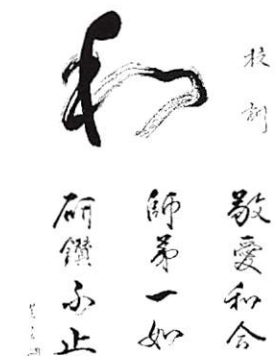 校訓
和
敬愛和合
師弟一如
研鑽不止